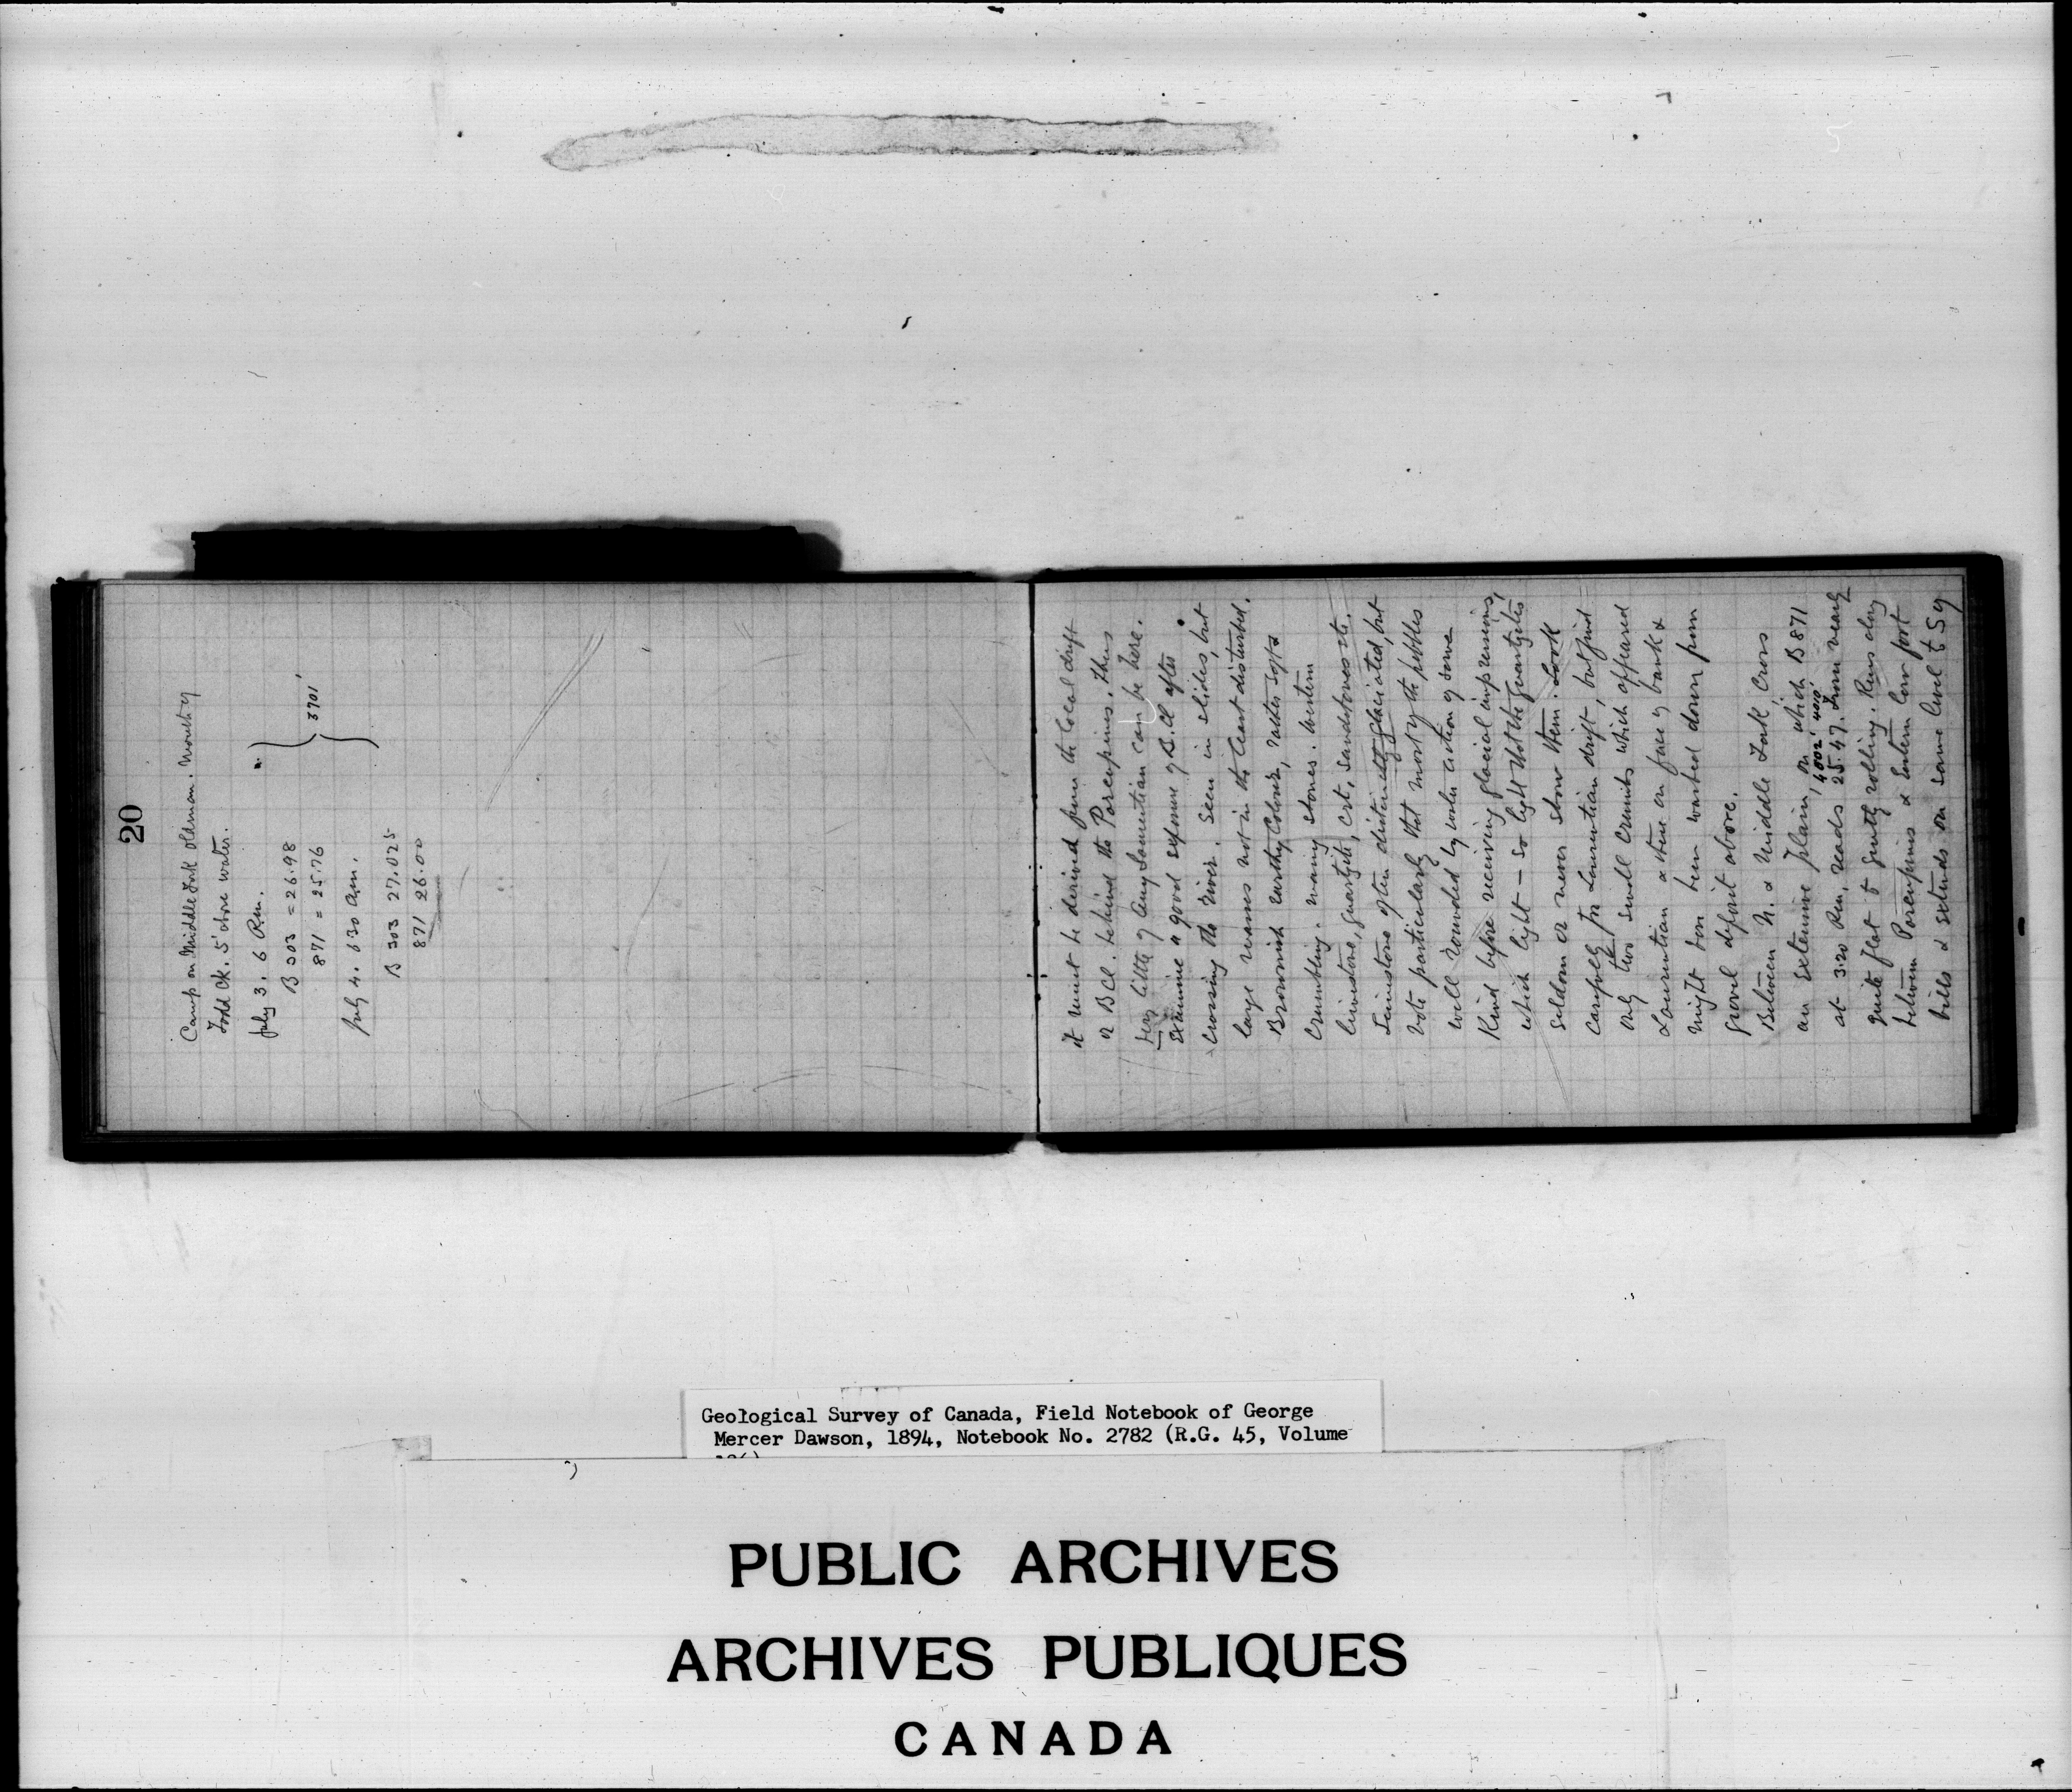 20
Camp on Middle Fork Oldman. Mouth of
Todd Ck. 5' above water.
July 3. 6 P.m.
B 303 = 26.98
871 = 25.76
3701'
July 4. 630 am.
B 303 27.025
871 26.00
it must be derived from the local drift
or B Cl. behind the Porcupines. Thus
Very little if any Laurentian can be here.
Examine a good exposure of B. Cl after
crossing the river. Seen in slides, but
large masses not in the least disturbed.
Brownish earthy colour, rather soft &
crumbling. many stones. Western
limestone, quartzite, crt, sandstones etc.
Limestone often distinctly glaciated, but
note particularly that most of the pebbles
well rounded by water action of some
kind before receiving glacial impressions,
which light — so light that the quartzites
seldom or never show them. Look
carefully for Laurentian drift, but find
only two small which appeared
Laurentian & these on face of bank &
might have been washed down from
gravel deposit above.
Between N. & Middle Fork, Cross
an extensive plain, on which B 871
4002' 4010'
at 3.20 P.m, reads 25.47. From nearly
quite flat to gently rolling. Runs along
between Porcupines & eastern low foot
hills & extends on same level to S of
Geological Survey of Canada, Field Notebook of George
Mercer Dawson, 1894, Notebook No. 2782 (R.G. 45, Volume
PUBLIC ARCHIVES
ARCHIVES PUBLIQUES
CANADA